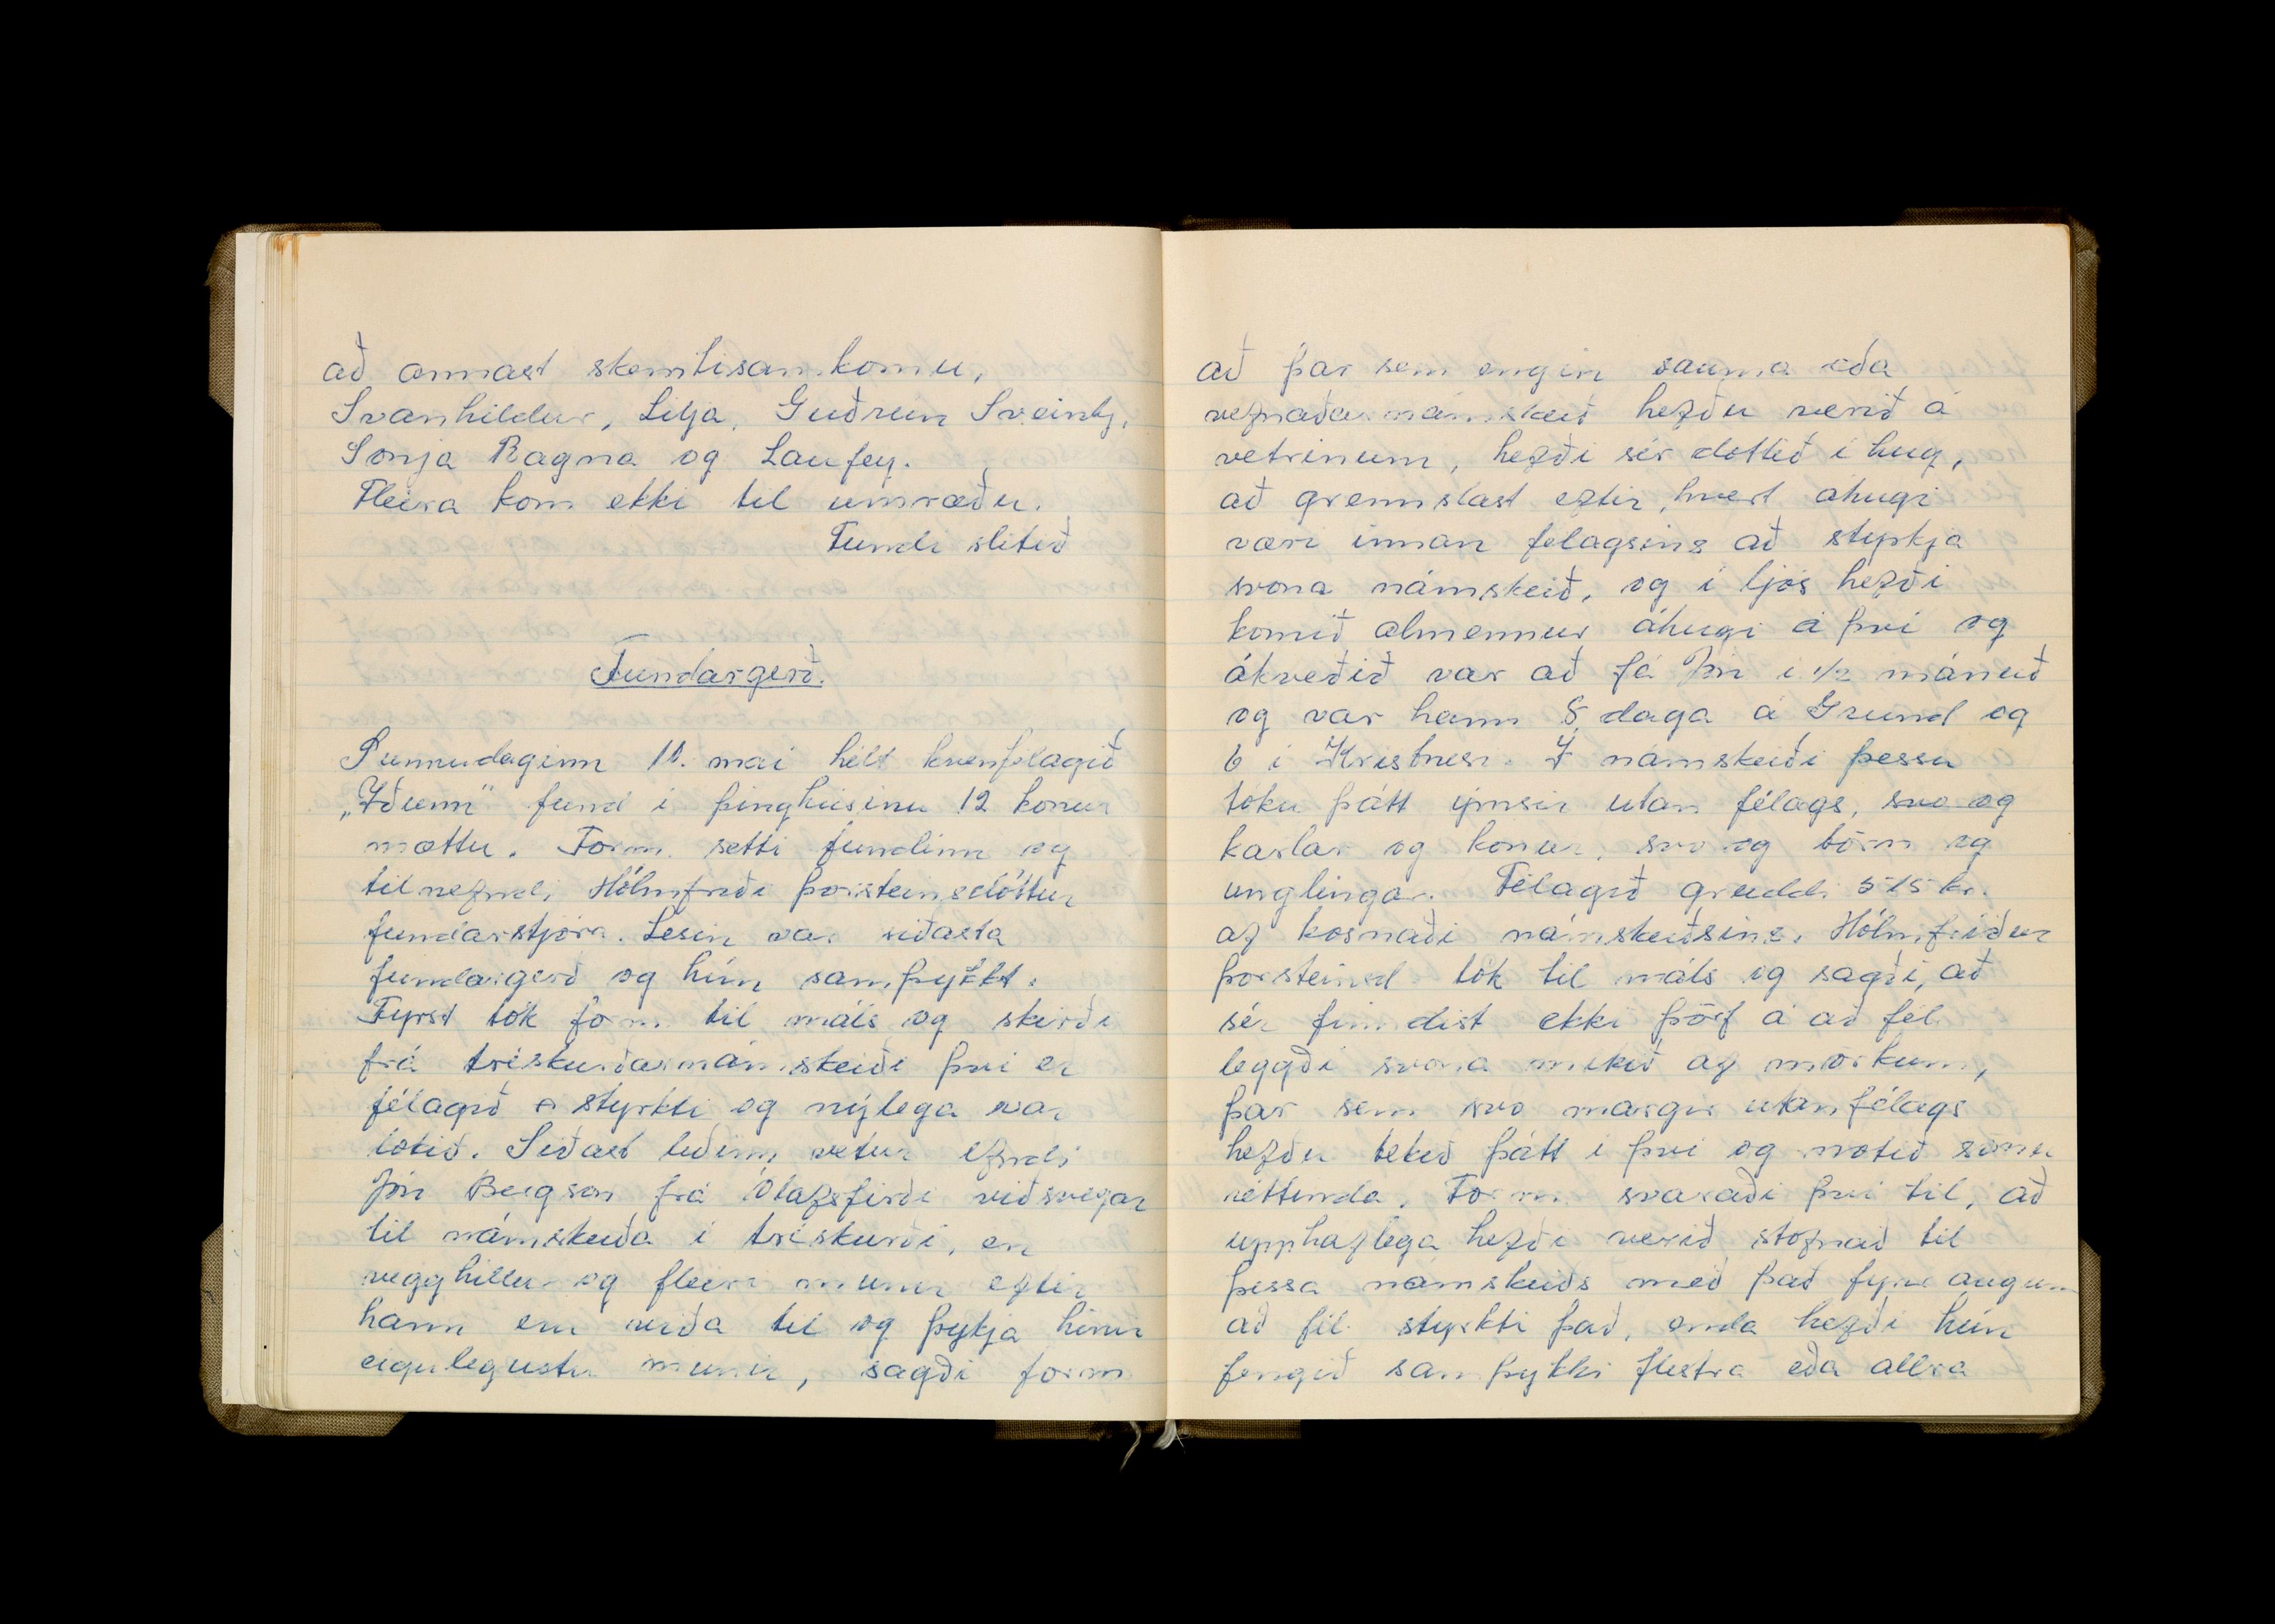 að annast skemtisamkomu,
Svanhildur, Lilja, Guðrún Sveinbj,
Sonja Ragna og Laufey.
Fleira kom ekki til umræðu.
Fundi slitið
Fundargerð.
Sunnudaginn 10. mai hélt kvenfélagið
„Iðunn" fund i þinghúsinu 12 konur
mættu. Form. setti fundinn og
tilnefndi Hólmfriði Þorsteinsdóttur
fundarstjóra. Lesin var siðasta
fundargerð og hún samþykkt.
Fyrst tók form til máls og skirði
frá tréskurðarnámskeiði þvi er
félagið styrkti og nýlega var
lokið. Siðast liðinn vetur efndi
Jón Bergson frá Ólafsfirði viðsvegar
til námskeiða i tréskurði, en
vegghillur og fleiri munir eftir
hann eru viða til og þykja hinir
eigulegustu munir, sagði form
að þar sem engin sauma eða
vefnaðarnámskeið hefðu verið á
vetrinum, hefði sér dottið i hug,
að grennslast eftir, hvert áhugi
væri innan félagsins að styrkja
svona námskeið, og i ljós hefði
komið almennur áhugi á þvi og
ákveðið var að fá Jón i 1/2 mánuð
og var hann 8 daga á Grund og
6 i Kristnesi. Í námskeiði þessu
tóku þátt ýmsir utan félags, svo og
karlar og konur, svo og börn og
unglingar. Félagið greiddi 515 kr.
af kosnaði námskeiðsins. Hólmfriður
Þorsteinsd tók til máls og sagði, að
sér fundist ekki þörf á að fél.
leggði svona mikið af mörkum,
þar sem svo margir utanfélags
hefðu tekið þátt i þvi og notið sömu
réttinda. Form. svaraði þvi til, að
upphaflega hefði verið stofnað til
þessa námskeiðs með það fyrir augum
að fél. styrkti það, enda hefði hún
fengið samþykki flestra eða allra